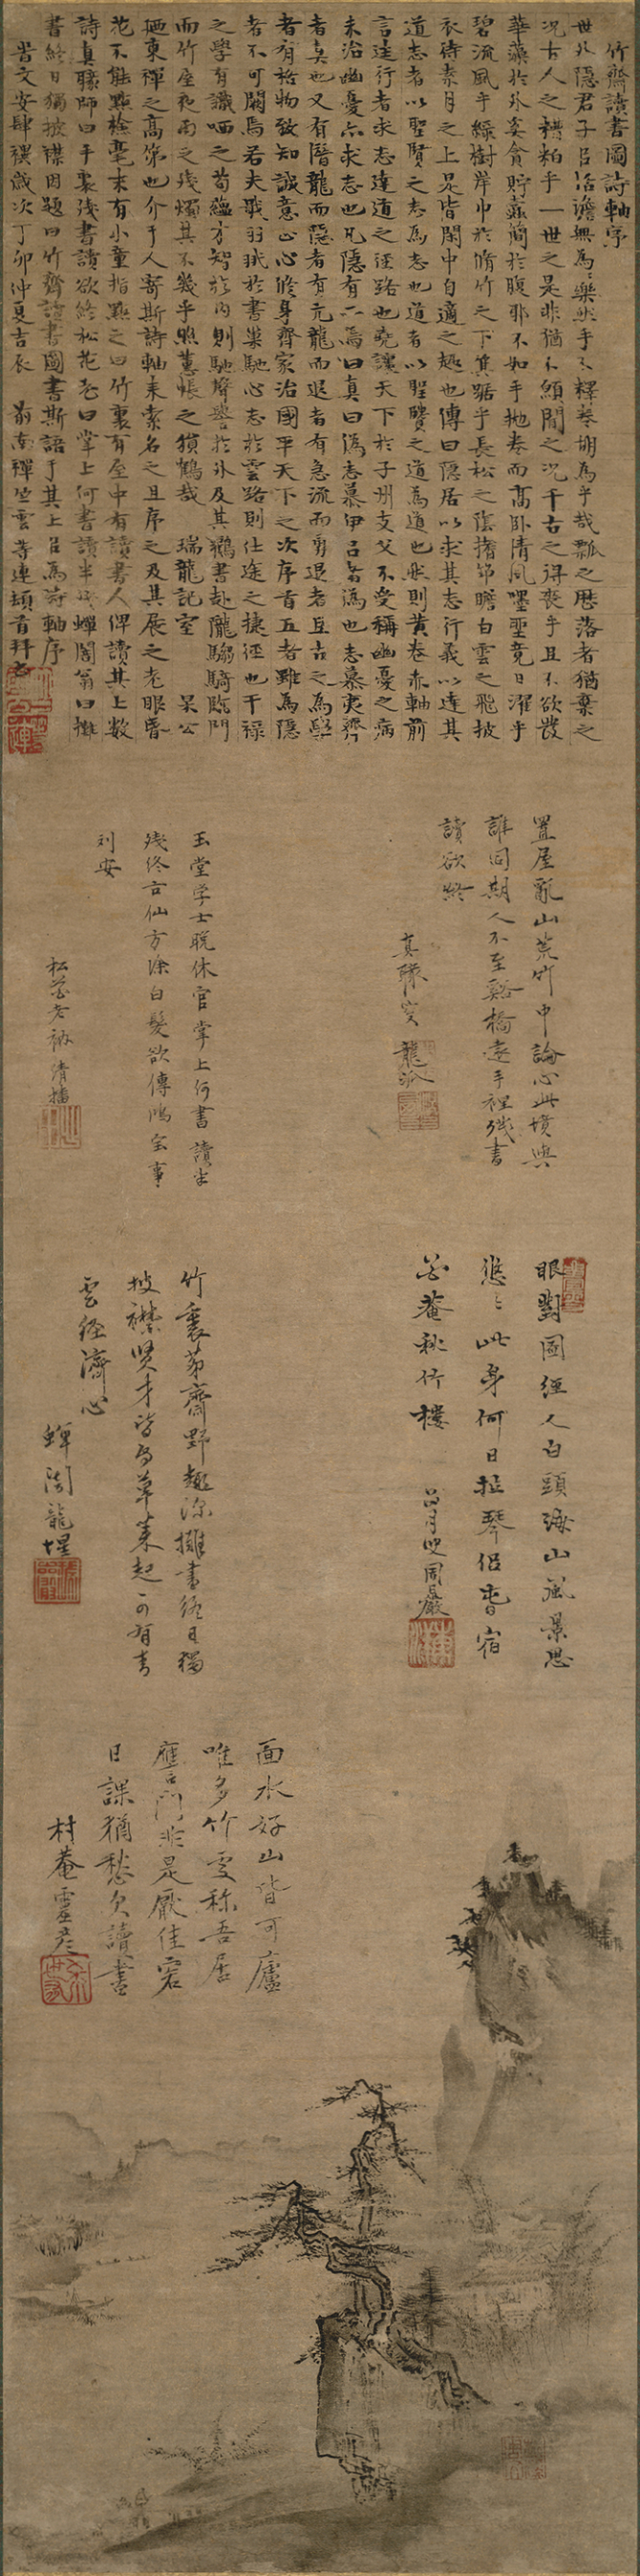 竹齋讀書圖詩軸序
世外隱君子呂活澹無為〻樂然乎不釋卷胡為乎哉瓢之歷落者猶棄之
況古人之糟粕乎一世之是非猶不願聞之況千古之得喪乎且不欲發
華藻於外奚貪貯蠹簡於腹耶不如手抛卷而高臥清風嘿聖竟日濯乎
碧流風乎綠樹岸巾於脩竹之下箕踞乎長松之陰搘筇瞻白雲之飛披
衣待素月之上是皆閑中自適之趣也傳曰隱居以求其志行義以達其
道志者以聖賢之志為志也道者以聖贒之道為道也然則黃卷赤軸前
言往行者求志達道之徑路也堯讓天下於子州支父不受稱幽憂之病
未治幽憂亦求志也凡隱有二焉曰真曰偽志慕伊呂者偽也志慕夷齊
者真也又有潛龍而隱者有亢龍而退者有急流而勇退者且古之為學
者有格物致知誠意正心修身齊家治國平天下之次序首五者雖為隱
者不可闕焉若夫戢羽翮於書巢馳心志於雲路則仕途之捷徑也干祿
之學有識哂之苟蘊才智於內則馳聲譽於外及其鶴書赴隴騶騎臨門
而竹屋夜雨之殘燭其不幾乎照蕙帳之猿鶴哉 瑞龍記室 杲公
東禪之高弟也介于人寄斯詩軸来索名之且序之及其展之老眼昏
花不能點檢毫末有小童指點之曰竹裏有屋中有讀書人俾讀其上數
詩真贒師曰手裏殘書讀欲終松花老曰掌上何書讀半殘蟬闇翁曰攤
書終日獨披襟因題曰竹齋讀書圖書斯語于其上呂為詩軸序
峕文安肆禩歲次丁卯仲夏吉辰 前南禪竺雲等連頓首拜書
置屋亂山荒竹中論心此境與
誰同期人不至谿橋遠手裡殘書
讀欲終
真贒叟 龍派
玉堂学士晚休官掌上何書讀半
殘終古仙方除白髮欲傳鴻宝事
刘安
松花老衲清播
眼對圖經人白頭海山風景思
悠〻此身何日拉琴侶
菴秋竹樓
叟周嚴
竹裏茅齋野趣深攤書終日獨
披襟贤才皆为草萊起可有青
雲經濟心
蟬闇龍惺
面水好山皆可廬
唯多竹處称吾居
應門非是厭佳客
日課猶愁欠讀書
村菴靈彥